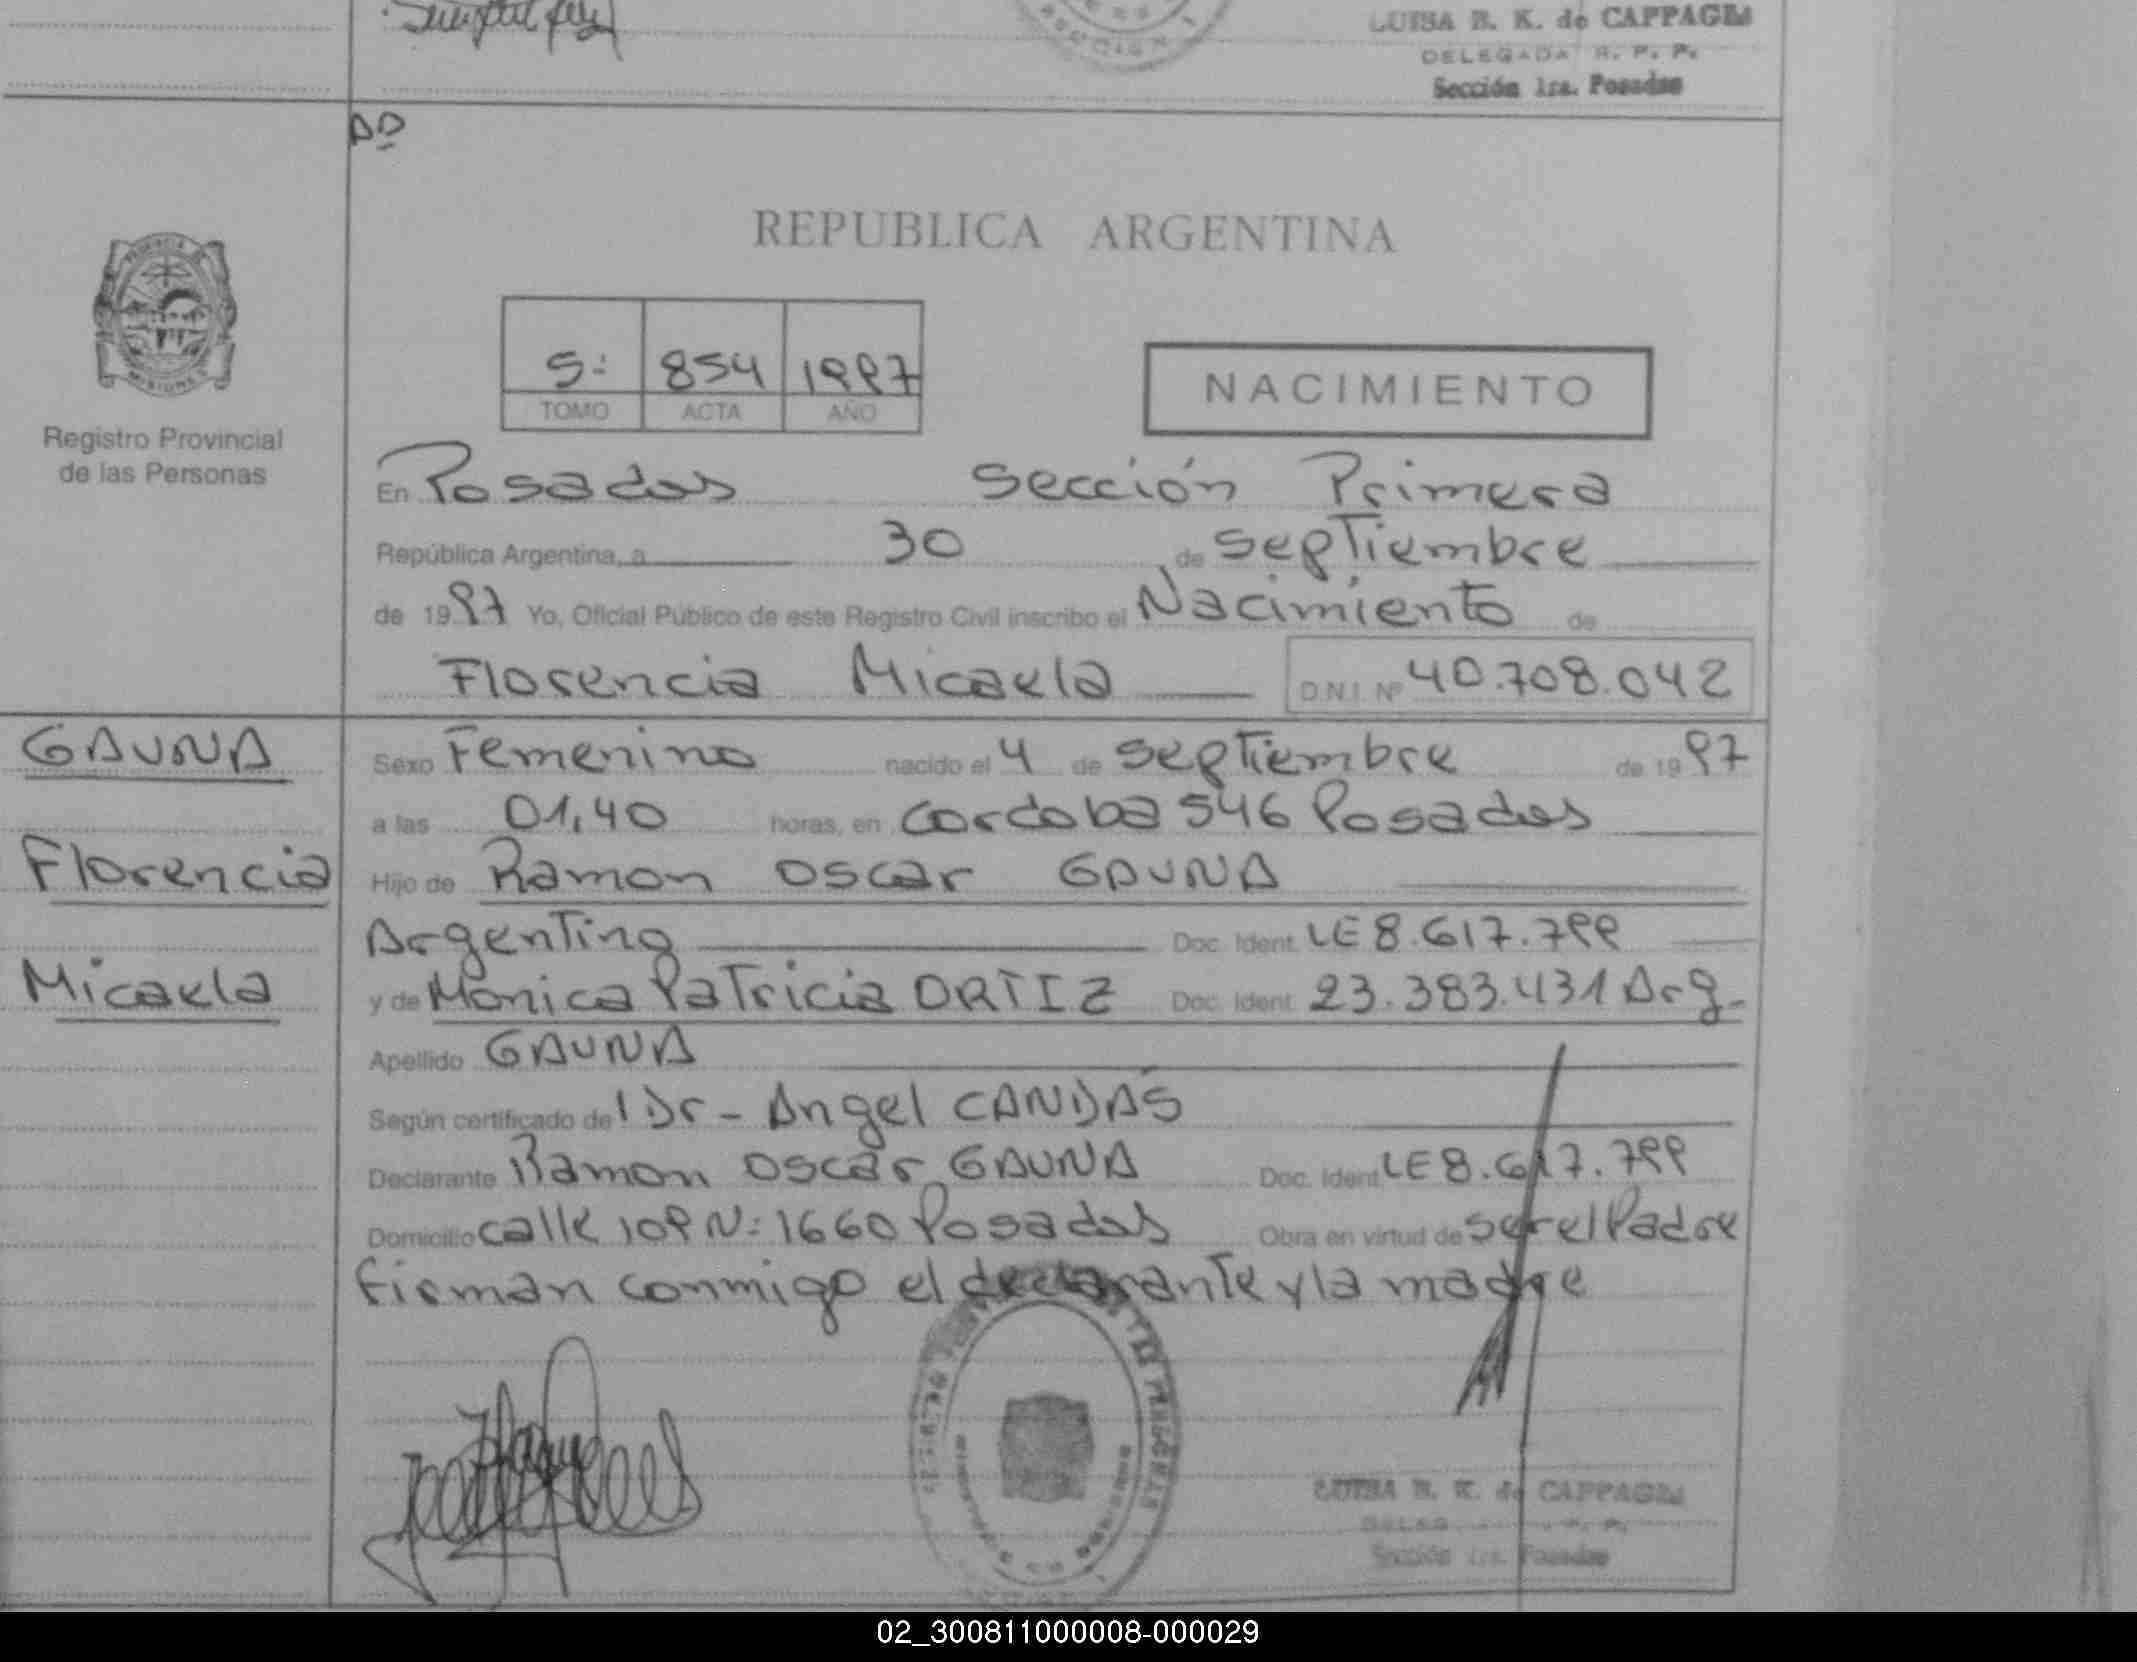 LUISA B. K. de CAPPAGLI
DELEGADA R. P. P.
Sección 1ra. Posadas
REPUBLICA ARGENTINA
MISIONES
S: 854 1997
TOMO ACTA AÑO
NACIMIENTO
Registro Provincial
de las Personas
En Posadas Sección Primera
República Argentina, a 30 de Septiembre
de 1997 Yo, Oficial Público de este Registro Civil inscribo el Nacimiento de
Florencia Micaela D.N.I. Nº 40.708.042
GAUNA
Florencia
Micaela
Sexo Femenino nacido el 4 de Septiembre de 1997
a las 01,40 horas, en Cordoba 546 Posadas
Hijo de Ramon Oscar GAUNA
Argentino Doc. Ident. LE 8.617.799
y de Monica Patricia ORTIZ Doc. Ident. 23.383.431 Arg.
Apellido GAUNA
Según certificado de l Dr - Angel CANDAS
Declarante Ramon Oscar GAUNA Doc. Ident. LE 8.617.799
Domicilio calle 109 N: 1660 Posadas Obra en virtud de ser el Padre
firman conmigo el declarante y la madre
LUISA B. K. de CAPPAGLI
Sección 1ra. Posadas
02_300811000008-000029